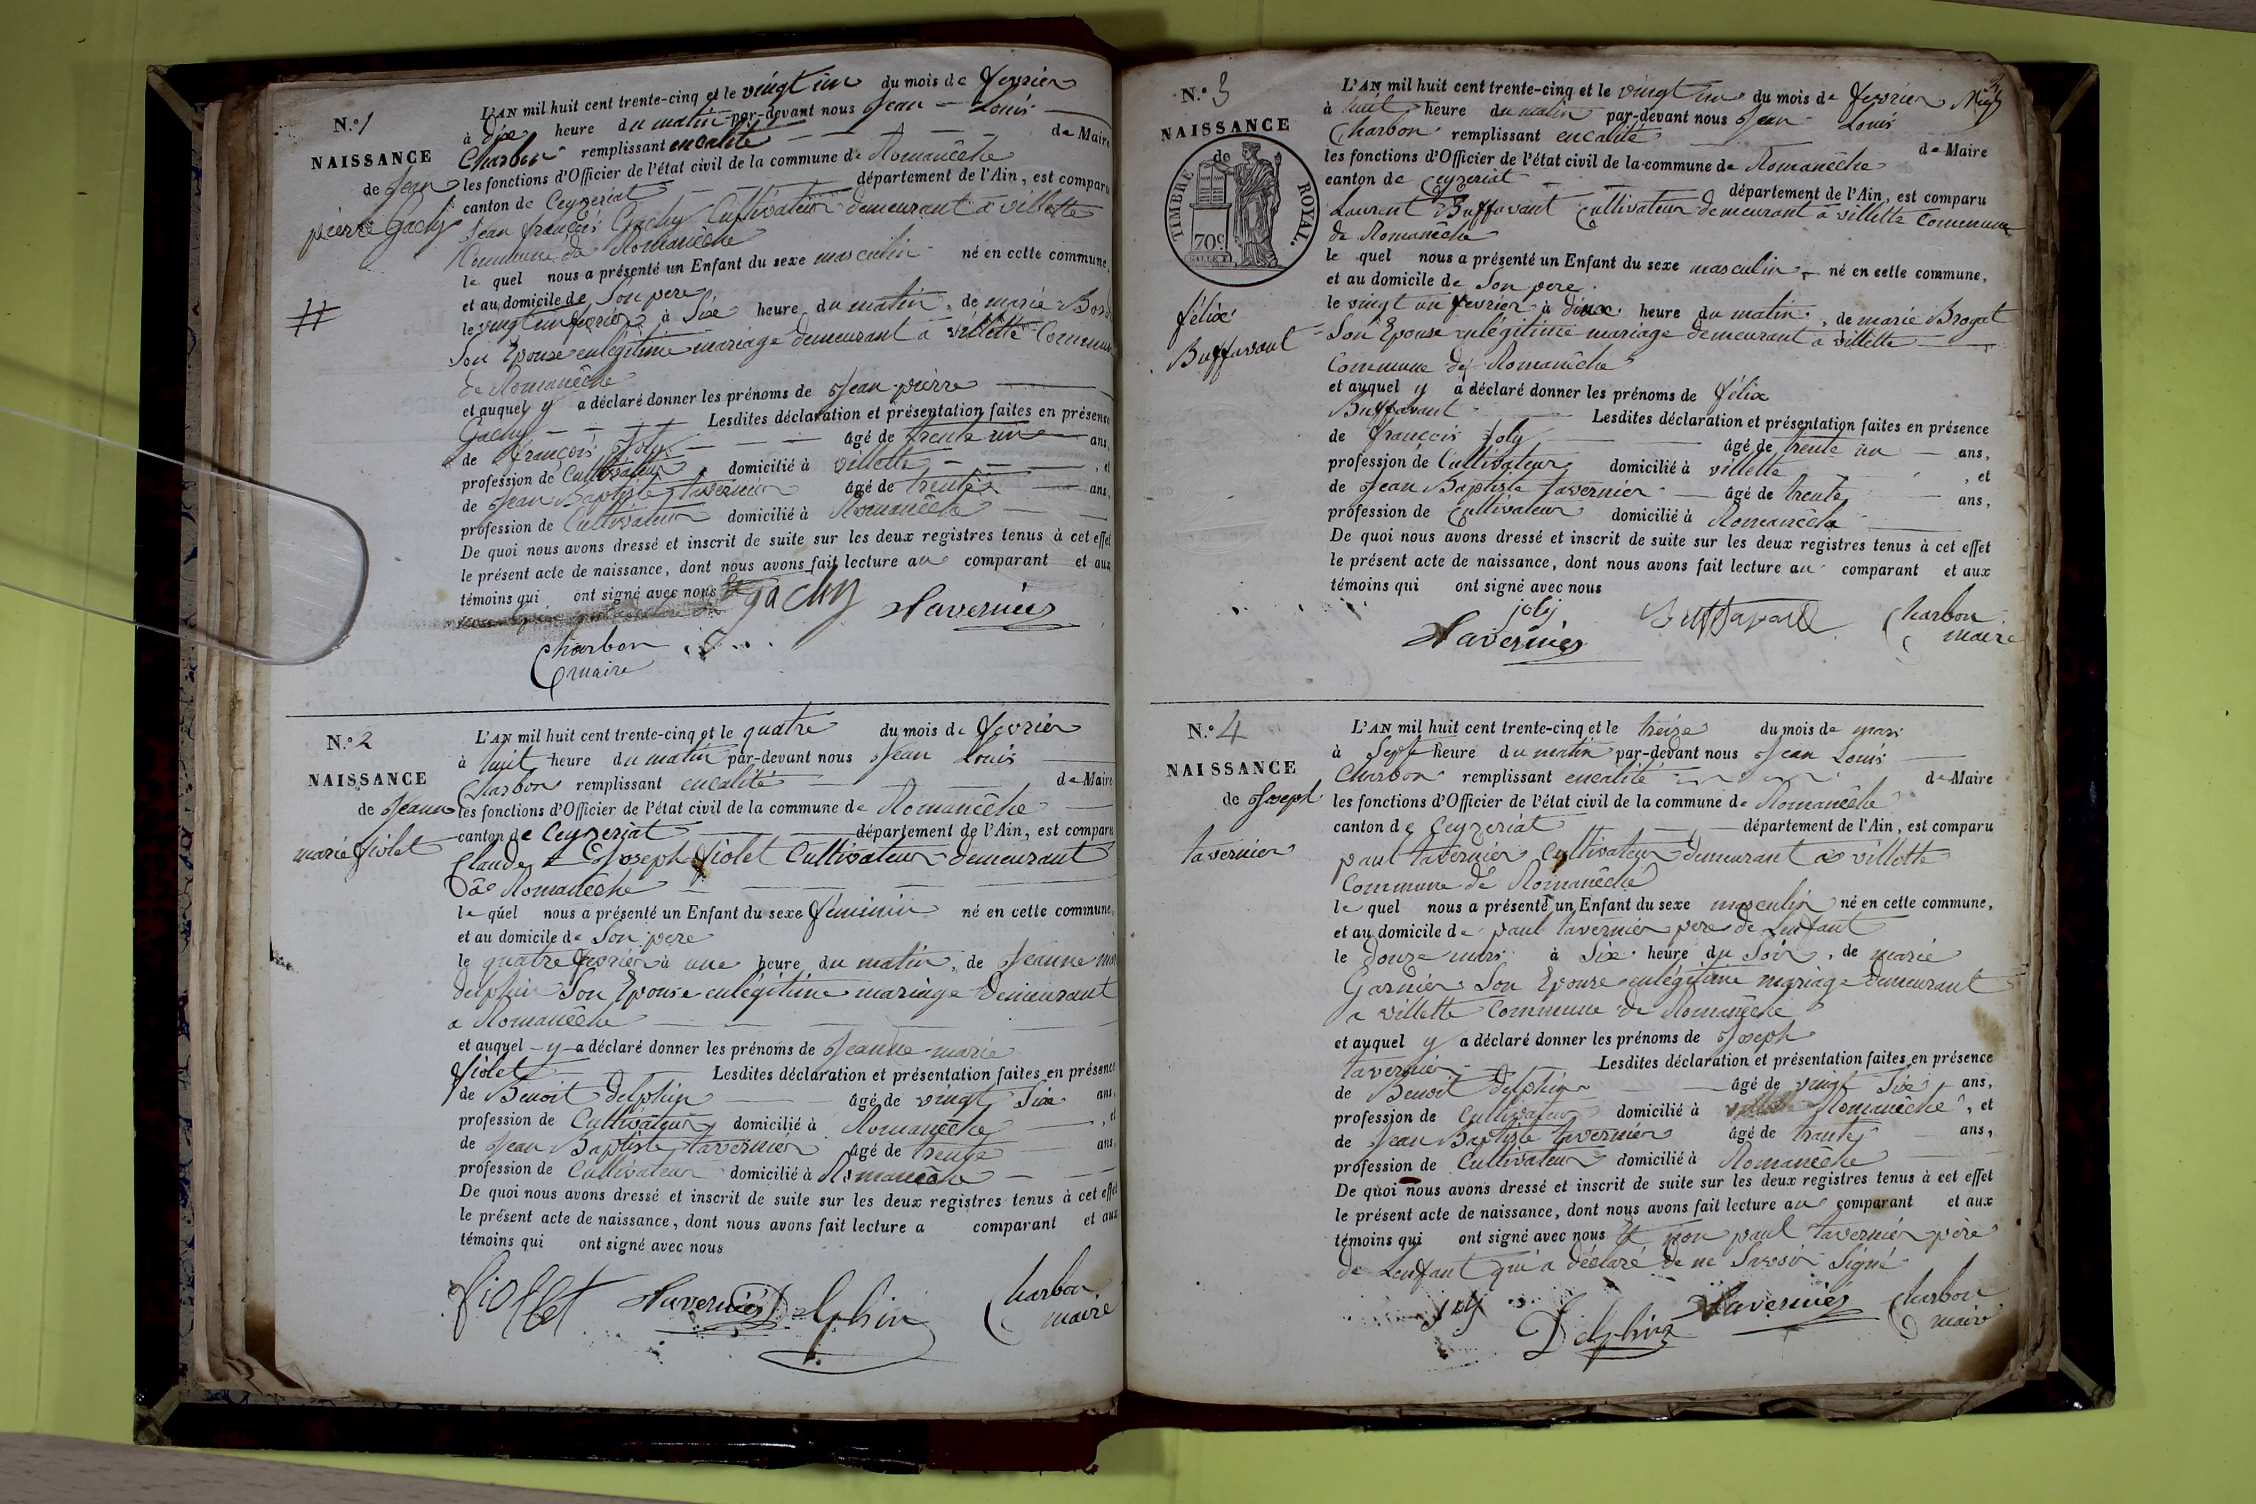 N.º 1
NAISSANCE
de Jean
pierre Gachy
L'AN mil huit cent trente-cinq et le vingt un du mois de fevrier
à dix heure du matin par-devant nous Jean Louis
Charbon remplissant encalité de Maire
les fonctions d'Officier de l'état civil de la commune de Romanêche
canton de Ceyzeriat département de l'Ain, est comparu
Jean françois Gachy Cultivateur demeurant a villette
Commune de Romanêche
le quel nous a présenté un Enfant du sexe masculin né en cette commune,
et au domicile de Son pere
le vingt un fevrier à Six heure du matin, de marie
Son Epouse enlégitime mariage demeurant a villette Commune
de Romanêche
et auquel y a déclaré donner les prénoms de Jean pierre
Gachy Lesdites déclaration et présentation faites en présence
de françois Joly âgé de trente un ans,
profession de Cultivateur domicilié à villette, et
de Jean Baptiste tavernier âgé de trente ans,
profession de Cultivateur domicilié à Romanêche
De quoi nous avons dressé et inscrit de suite sur les deux registres tenus à cet effet
le présent acte de naissance, dont nous avons fait lecture au comparant et aux
témoins qui ont signé avec nous
gachy Tavernier
Charbon
maire
N.º 2
NAISSANCE
de Jeanne
marie fiolet
L'AN mil huit cent trente-cinq et le quatre du mois de fevrier
à huit heure du matin par-devant nous Jean Louis
Charbon remplissant encalité de Maire
les fonctions d'Officier de l'état civil de la commune de Romanêche
canton de Ceyzeriat département de l'Ain, est comparu
Claude Joseph fiolet Cultivateur demeurant
à Romanêche
le quel nous a présenté un Enfant du sexe feminin né en cette commune,
et au domicile de Son pere
le quatre fevrier à une heure du matin, de Jeanne
delphin Son Epouse enlégitime mariage demeurant
a Romanêche
et auquel y a déclaré donner les prénoms de Jeanne marie
fiolet Lesdites déclaration et présentation faites en présence
de Benoit delphin âgé de vingt Six ans,
profession de Cultivateur domicilié à Romanêche, et
de Jean Baptiste tavernier âgé de trente ans,
profession de Cultivateur domicilié à Romanêche
De quoi nous avons dressé et inscrit de suite sur les deux registres tenus à cet effet
le présent acte de naissance, dont nous avons fait lecture a comparant et aux
témoins qui ont signé avec nous
fiollet Tavernier Delphin Charbon
maire
N.º 3
NAISSANCE
de
TIMBRE ROYAL.
70c
félix
Buffavant
L'AN mil huit cent trente-cinq et le vingt un du mois de fevrier
à huit heure du matin par-devant nous Jean Louis
Charbon remplissant encalité de Maire
les fonctions d'Officier de l'état civil de la commune de Romanêche
canton de Ceyzeriat département de l'Ain, est comparu
Laurent Buffavant Cultivateur demeurant a villette Commune
de Romanêche
le quel nous a présenté un Enfant du sexe masculin né en cette commune,
et au domicile de Son pere
le vingt un fevrier à heure du matin, de marie Broyat
Son Epouse enlégitime mariage demeurant a villette
Commune de Romanêche
et auquel y a déclaré donner les prénoms de félix
Buffavant Lesdites déclaration et présentation faites en présence
de françois Joly âgé de trente un ans,
profession de Cultivateur domicilié à villette, et
de Jean Baptiste tavernier âgé de trente ans,
profession de Cultivateur domicilié à Romanêche
De quoi nous avons dressé et inscrit de suite sur les deux registres tenus à cet effet
le présent acte de naissance, dont nous avons fait lecture au comparant et aux
témoins qui ont signé avec nous
joly Charbon
Tavernier maire
N.º 4
NAISSANCE
de Joseph
tavernier
L'AN mil huit cent trente-cinq et le treize du mois de mars
à Sept heure du matin par-devant nous Jean Louis
Charbon remplissant encalité de Maire
les fonctions d'Officier de l'état civil de la commune de Romanêche
canton de Ceyzeriat département de l'Ain, est comparu
paul tavernier Cultivateur demeurant a villette
Commune de Romanêche
le quel nous a présenté un Enfant du sexe masculin né en cette commune,
et au domicile de paul tavernier pere de Lenfant
le douze mars à Six heure du Soir, de marie
Garnier Son Epouse enlégitime mariage demeurant
a villette Commune de Romanêche
et auquel y a déclaré donner les prénoms de Joseph
tavernier Lesdites déclaration et présentation faites en présence
de Benoit delphin âgé de vingt Six ans,
profession de Cultivateur domicilié à Romanêche, et
de Jean Baptiste tavernier âgé de trante ans,
profession de Cultivateur domicilié à Romanêche
De quoi nous avons dressé et inscrit de suite sur les deux registres tenus à cet effet
le présent acte de naissance, dont nous avons fait lecture au comparant et aux
témoins qui ont signé avec nous Et non paul tavernier père
de Lenfant qui a déclaré de ne Savoir Signé
Delphin Tavernier Charbon
maire